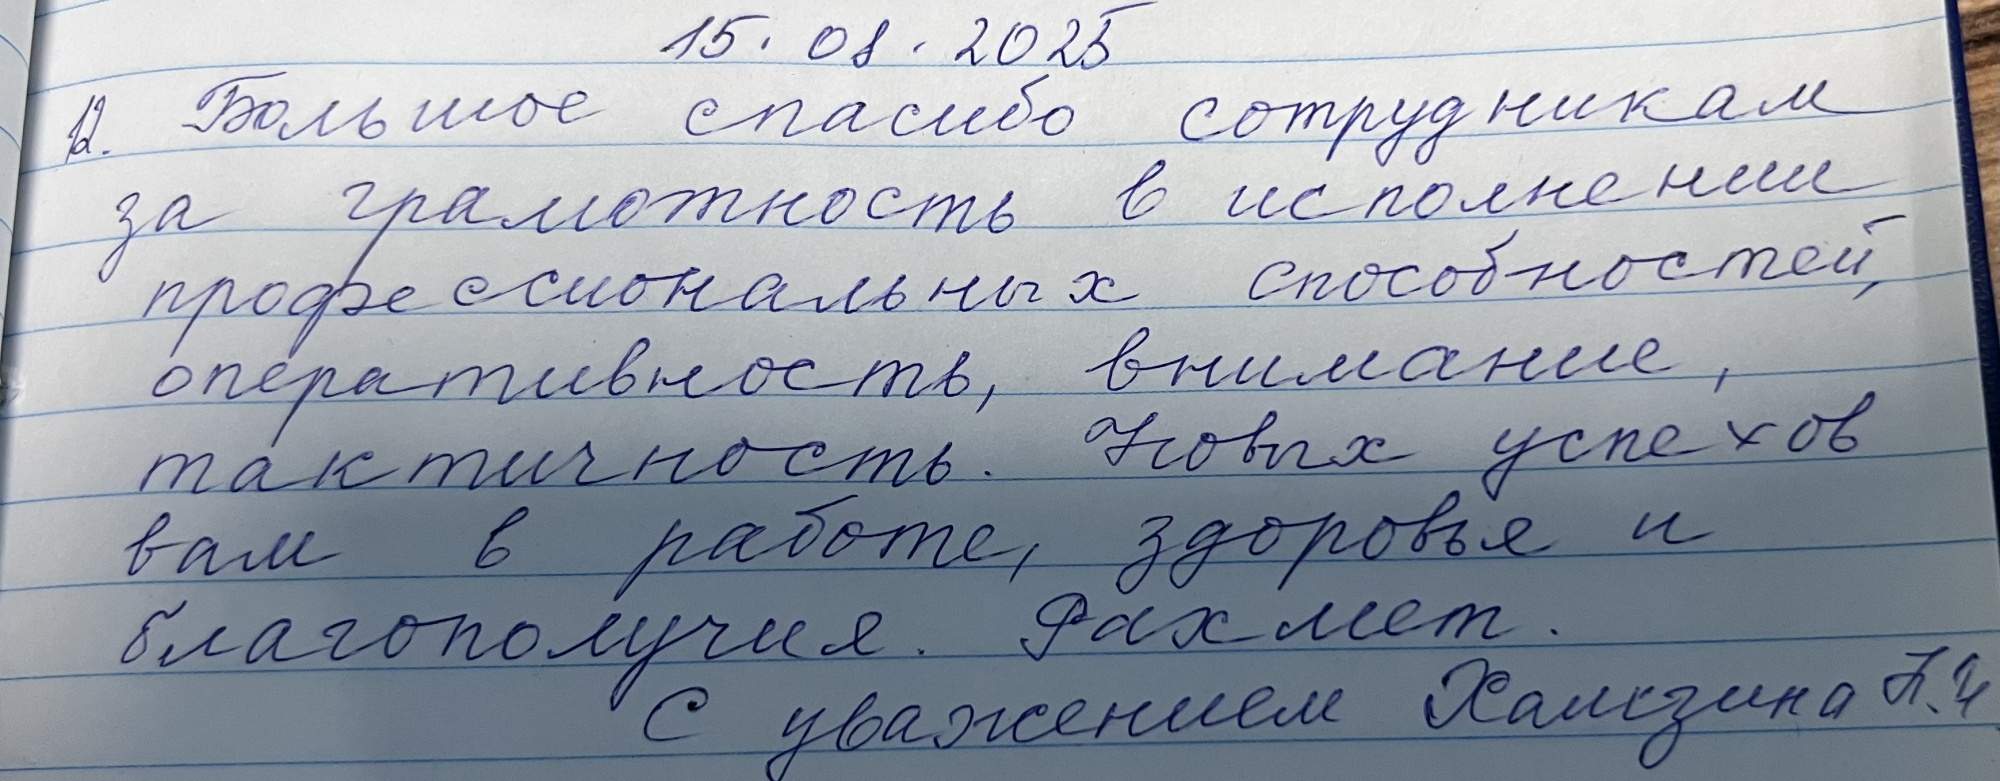 15.08.2025
12. Большое спасибо сотрудникам
за грамотность в исполнении
профессиональных способностей,
оперативность, внимание,
тактичность. Новых успехов
вам в работе, здоровья и
благополучия. Рахмет.
С уважением Хамзина